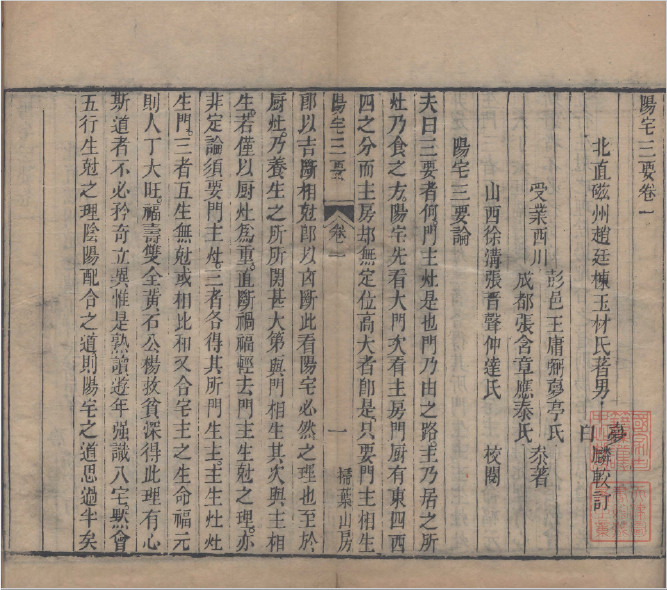 陽宅三要卷一
北直磁州趙廷棟玉材氏著男
夢麟
白
較訂
受業西川
彭邑王庸弼夢亭氏
成都張含章應泰氏
山西徐溝張晉聲仲達氏
泰著
校閱
陽宅三要論
夫曰三要者何門主灶是也門乃由之路主乃居之所
灶乃食之方陽宅先看大門次看主房門厨有東四西
四之分而主房却無定位高大者卽是只要門主相生
陽宅三要
卷一
一
掃葉山房
郎以吉斷相尅郎以凶斷此看陽宅必然之理也至於
厨灶乃養生之所所關甚大第與門相生其次與主相
生若僅以厨灶為重直斷禍福輕去門主生尅之理亦
非定論須要門主灶三者各得其所門生主主生灶灶
生門三者五生無尅或相比相又合宅主之生命福元
則人丁大旺福壽雙全黃石公楊救貧深得此理有心
斯道者不必矜奇立異惟是熟讀遊年強識八宅默會
五行生尅之理陰陽配合之道則陽宅之道思過半矣